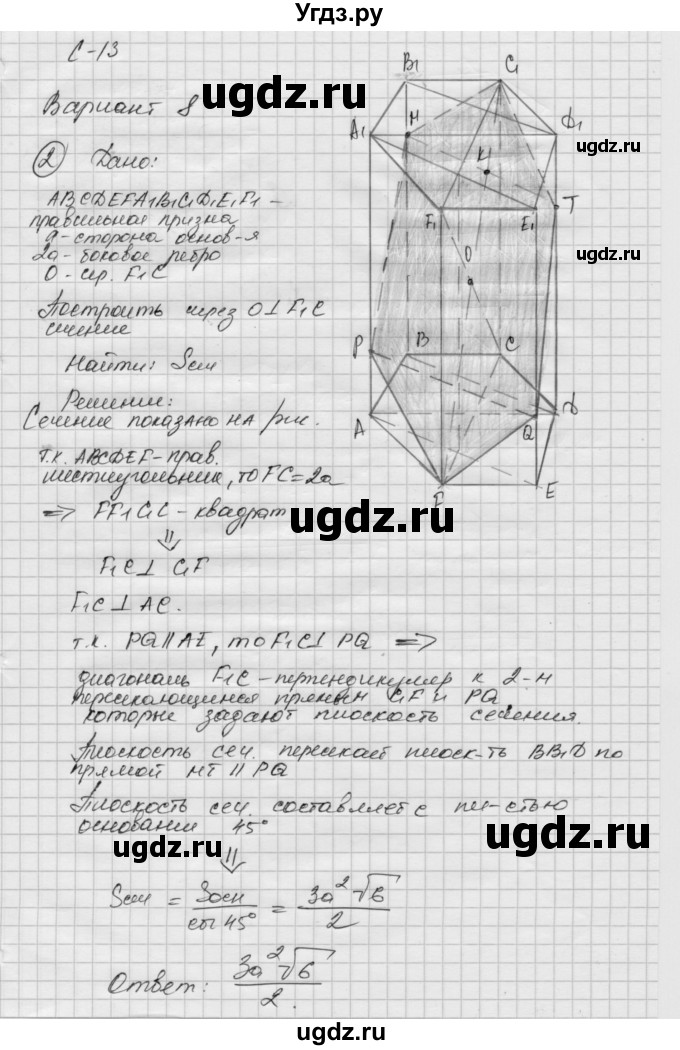 Угдз.ру
С-13
Вариант 8
② Дано:
ABCDEFA₁B₁C₁D₁E₁F₁ -
правильная призма
a - сторона основ-я
2a - боковое ребро
O - сер. F₁C
Построить через O ⊥ F₁C
сечение
Найти: Sсеч
Решение:
Сечение показано на рис.
т.к. ABCDEF - прав.
шестиугольник, то FC = 2a
=> FF₁C₁C - квадрат
⇓
F₁C ⊥ C₁F
F₁C ⊥ AC.
т.к. PQ ∥ AE, то F₁C ⊥ PQ =>
диагональ F₁C - перпендикуляр к 2-м
пересекающимся прямым C₁F и PQ,
которые задают плоскость сечения.
Плоскость сеч. пересекает плоск-ть BB₁D по
прямой MT ∥ PQ
Плоскость сеч. составляет с пл-стью
основания 45°
⇓
Sсеч = Sосн / cos 45° = 3a²√6 / 2
Ответ: 3a²√6 / 2.
B₁ C₁
A₁ M D₁
K
F₁ E₁ T
O
P B C
A Q D
F E
ugdz.ru
ugdz.ru
ugdz.ru
ugdz.ru
ugdz.ru
ugdz.ru
ugdz.ru
ugdz.ru
ugdz.ru
ugdz.ru
ugdz.ru